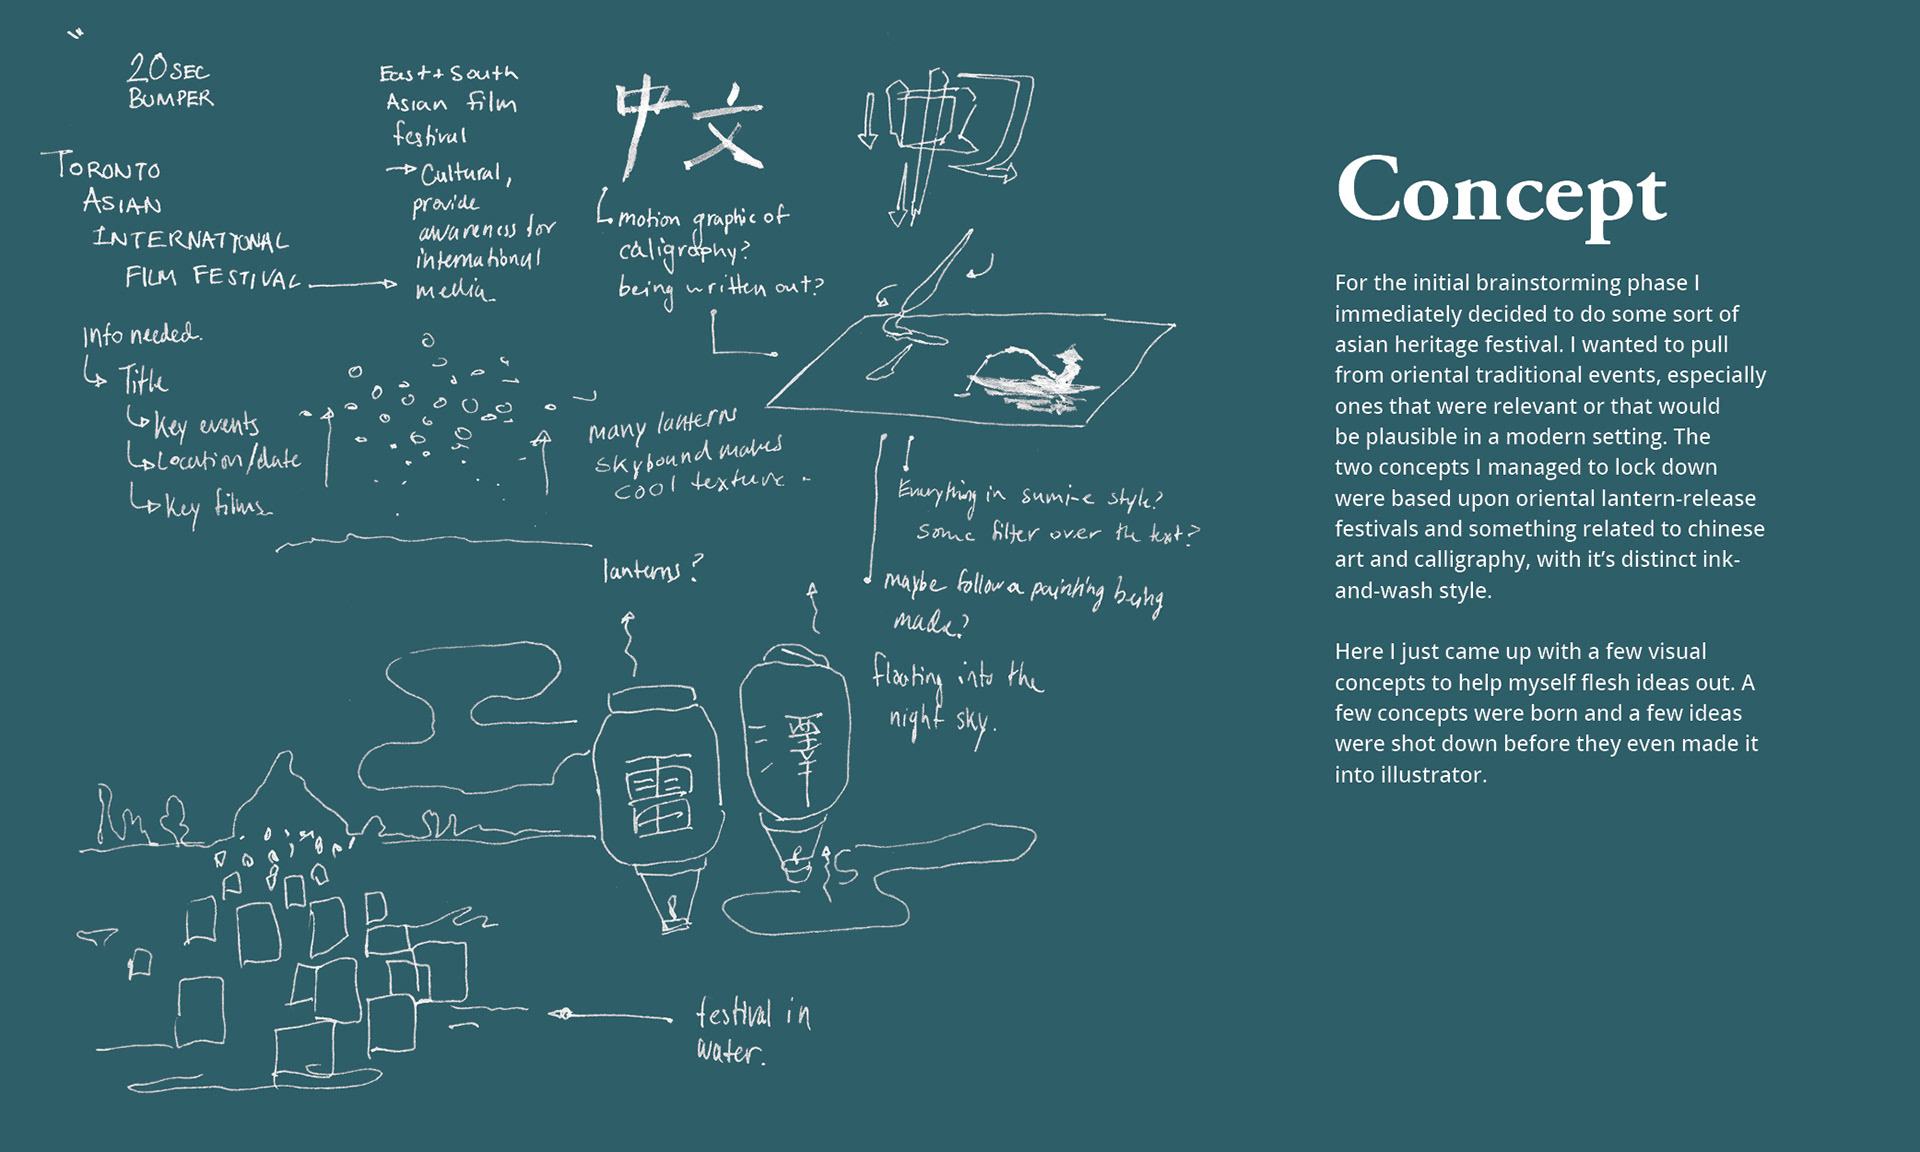 20 SEC
BUMPER
TORONTO
ASIAN
INTERNATIONAL
FILM FESTIVAL
East + South
Asian film
festival
Cultural,
provide
awareness for
international
media
Info needed.
Title
Key events
Location/date
Key films
中文
motion graphic of
caligraphy?
being written out?
many lanterns
skybound makes
cool texture
Everything in sumi-e style?
Some filter over the text?
maybe follow a painting being
made?
lanterns?
floating into the
night sky.
雷
festival in
water.
Concept
For the initial brainstorming phase I
immediately decided to do some sort of
asian heritage festival. I wanted to pull
from oriental traditional events, especially
ones that were relevant or that would
be plausible in a modern setting. The
two concepts I managed to lock down
were based upon oriental lantern-release
festivals and something related to chinese
art and calligraphy, with it’s distinct ink-
and-wash style.
Here I just came up with a few visual
concepts to help myself flesh ideas out. A
few concepts were born and a few ideas
were shot down before they even made it
into illustrator.